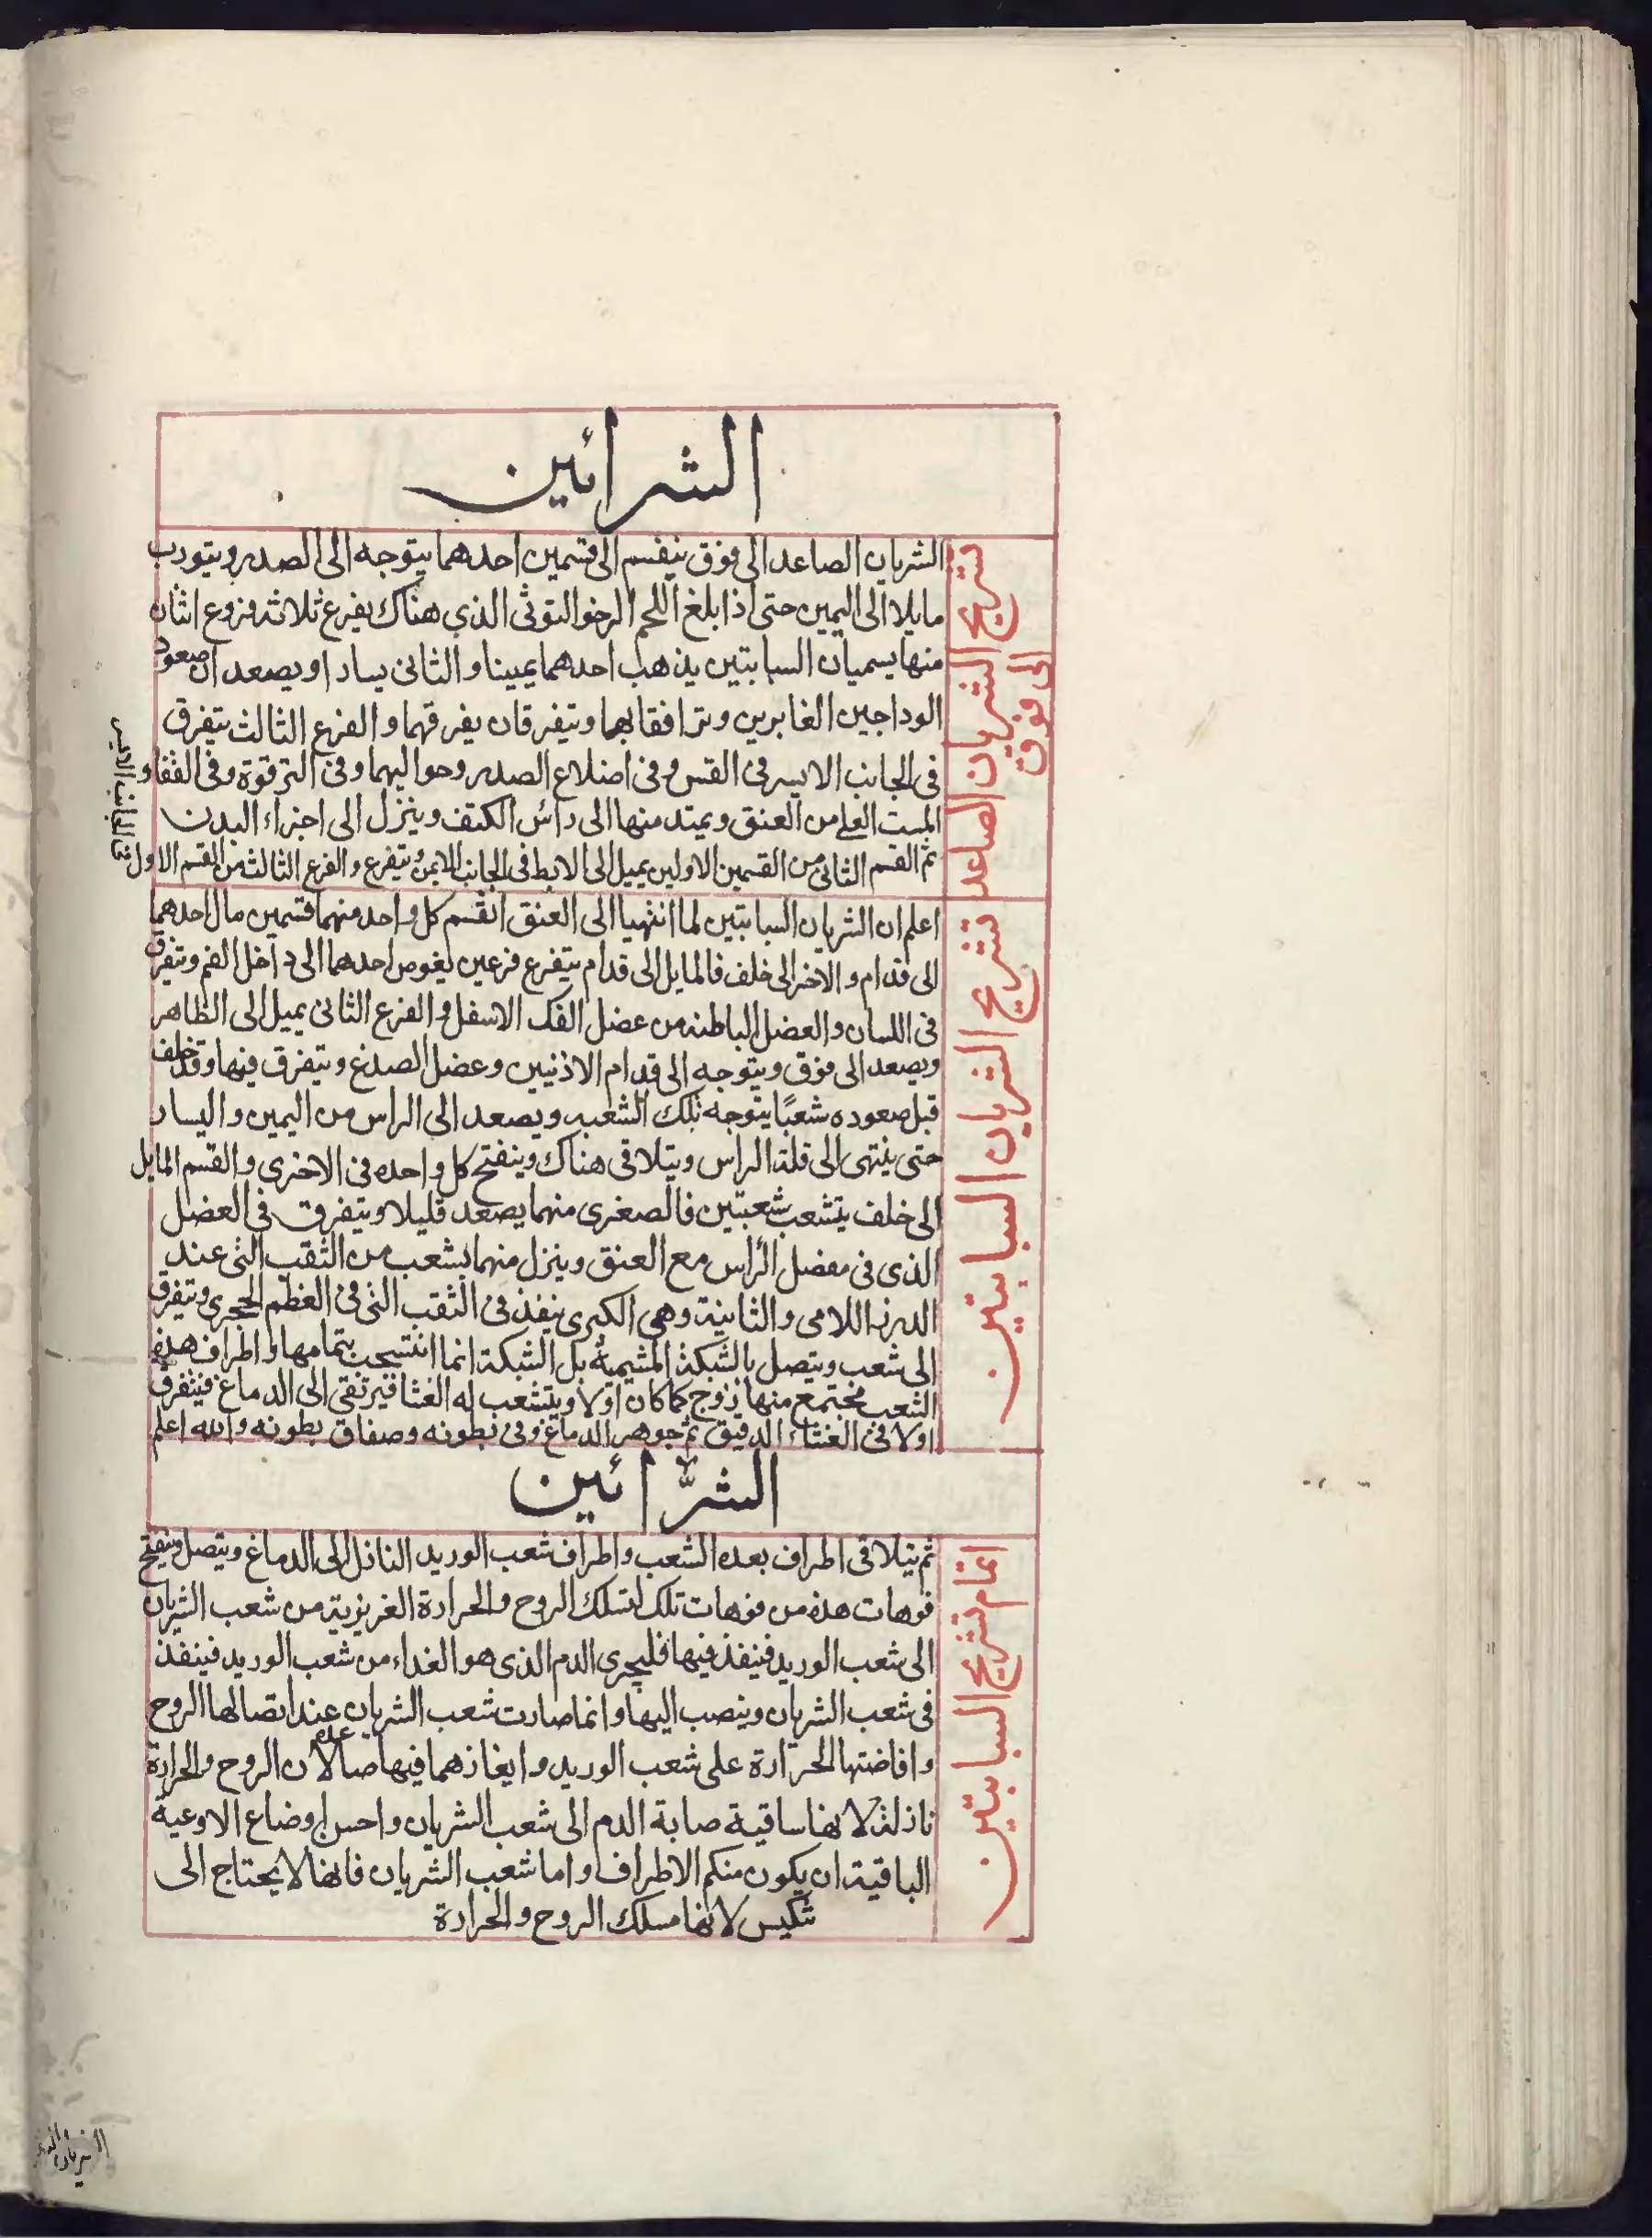 الشرائين
تشريح الشريان الصاعد
الى فوق
الشريان الصاعد الى فوق ينقسم الى قسمين احدهما يتوجه الى الصدر ويتورب
مايلا الى اليمين حتى اذا بلغ اللحم الرخو التوثى الذي هناك يفرع ثلاثة فروع اثنان
منها يسميان السباتيين يذهب احدهما يمينا والثانى يسارا ويصعدان صعود
الوداجين الغابرين وترافقا بهما ويتفرقان يفرقهما والفرع الثالث يتفرق
فى الجانب الايسر فى القس وفى اضلاع الصدر وحواليهما وفى الترقوة وفى الفقار
الست العلى من العنق ويمتد منها الى رأس الكتف وينزل الى اجزاء البدن
ثم القسم الثانى من القسمين الاولين يميل الى الابط فى الجانب الايمن ويتفرع والفرع الثالث من القسم الاول
فى الجانب الايسر
تشريح الشريان السباتيين
اعلم ان الشريان السباتيين لما انتهيا الى العنق انقسم كل واحد منهما قسمين مال احدهما
الى قدام والاخر الى خلف فالمايل الى قدام يتفرع فرعين يغوص احدهما الى داخل الفم ويتفرق
فى اللسان والعضل الباطنه من عضل الفك الاسفل والفرع الثانى يميل الى الظاهر
ويصعد الى فوق ويتوجه الى قدام الاذنيين وعضل الصدغ ويتفرق فيها وقد خلف
قبل صعوده شعبًا يتوجه تلك الشعبه ويصعد الى الراس من اليمين واليسار
حتى ينتهى الى قلة الراس ويتلاقى هناك وينفتح كل واحده فى الاخرى والقسم المايل
الى خلف يتشعب شعبتين فالصغرى منهما يصعد قليلا ويتفرق فى العضل
الذى فى مفصل الرأس مع العنق وينزل منهما بشعب من الثقب التى عند
الدرز اللامى والثانية وهى الكبرى ينفذ فى الثقب التى فى العظم الحجرى ويتفرق
الى شعب ويتصل بالشبكة المشيمية بل الشبكة انما انتسجت بتمامها واطراف هذه
الشعب مجتمع منها زوج كما كان اولا ويتشعب له الغشا فيرتقى الى الدماغ فيتفرق
اولا فى الغشاء الدقيق ثم جوهر الدماغ وفى بطونه وصفاق بطونه والله اعلم
الشرائين
اتمام تشريح السباتيين
ثم يتلاقى اطراف بعده الشعب واطراف شعب الوريد النازل الى الدماغ ويتصل وينفتح
فوهات هذه من فوهات تلك لتسلك الروح والحرارة الغريزية من شعب الشريان
الى شعب الوريد فينفذ فيها فليجرى الدم الذى هو الغداء من شعب الوريد فينفذ
فى شعب الشريان وينصب اليها وانما صارت شعب الشريان عند اتصالها الروح
وافاضتها الحرارة على شعب الوريد وايغازهما فيها صاعدة لان الروح والحرارة
نازلة لانها ساقية صابة الدم الى شعب الشريان واحسن اوضاع الاوعية
الباقية ان يكون منكم الاطراف واما شعب الشريان فانها لا يحتاج الى
تنكيس لانها مسلك الروح والحرارة